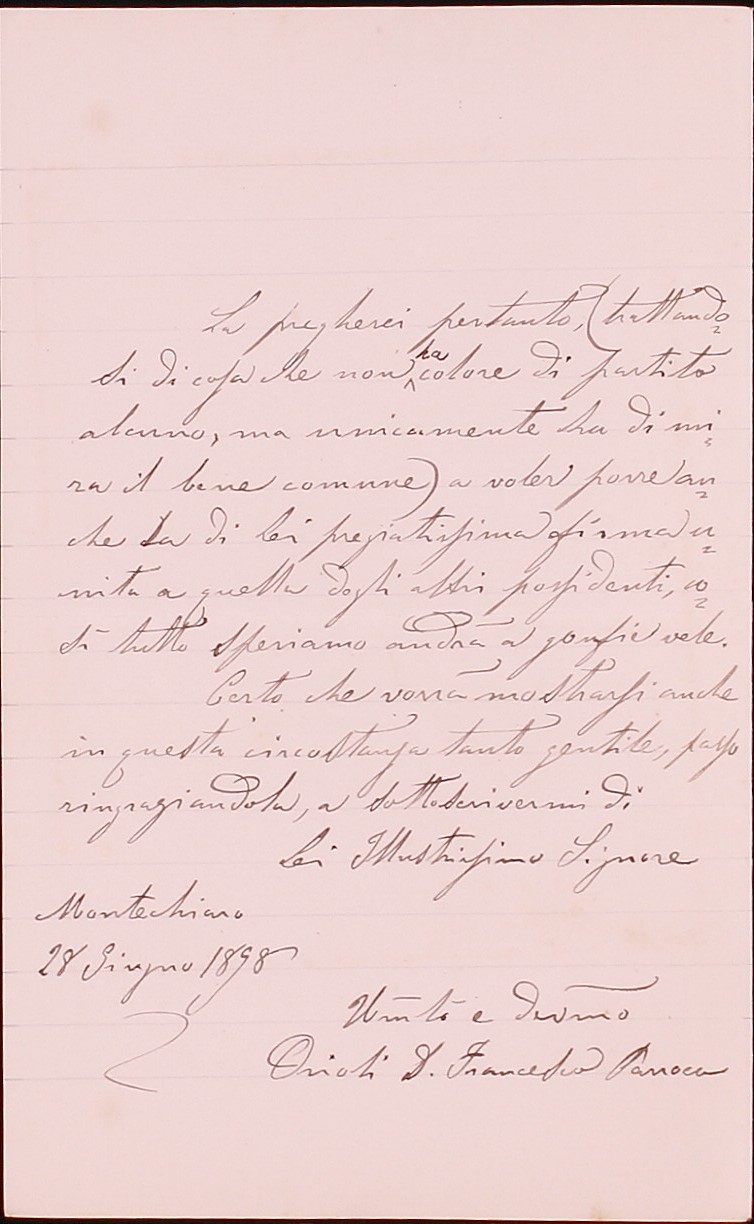 La pregherei pertanto, (trattando=
si di cosa che non ha colore di partito
alcuno, ma unicamente ha di mi=
ra il bene comune) a voler porre an=
che la di Lei pregiatissima firma u=
nita a quella degli altri possidenti, co=
sì tutto speriamo andrà a gonfie vele.
Certo che vorrà mostrarsi anche
in questa circostanza tanto gentile, passo
ringraziandola, a sottoscrivermi di
Lei Illustrissimo Signore
Montechiaro
28 Giugno 1898
Um̄to e Devm̄o
Orioli D. Francesco Parroco